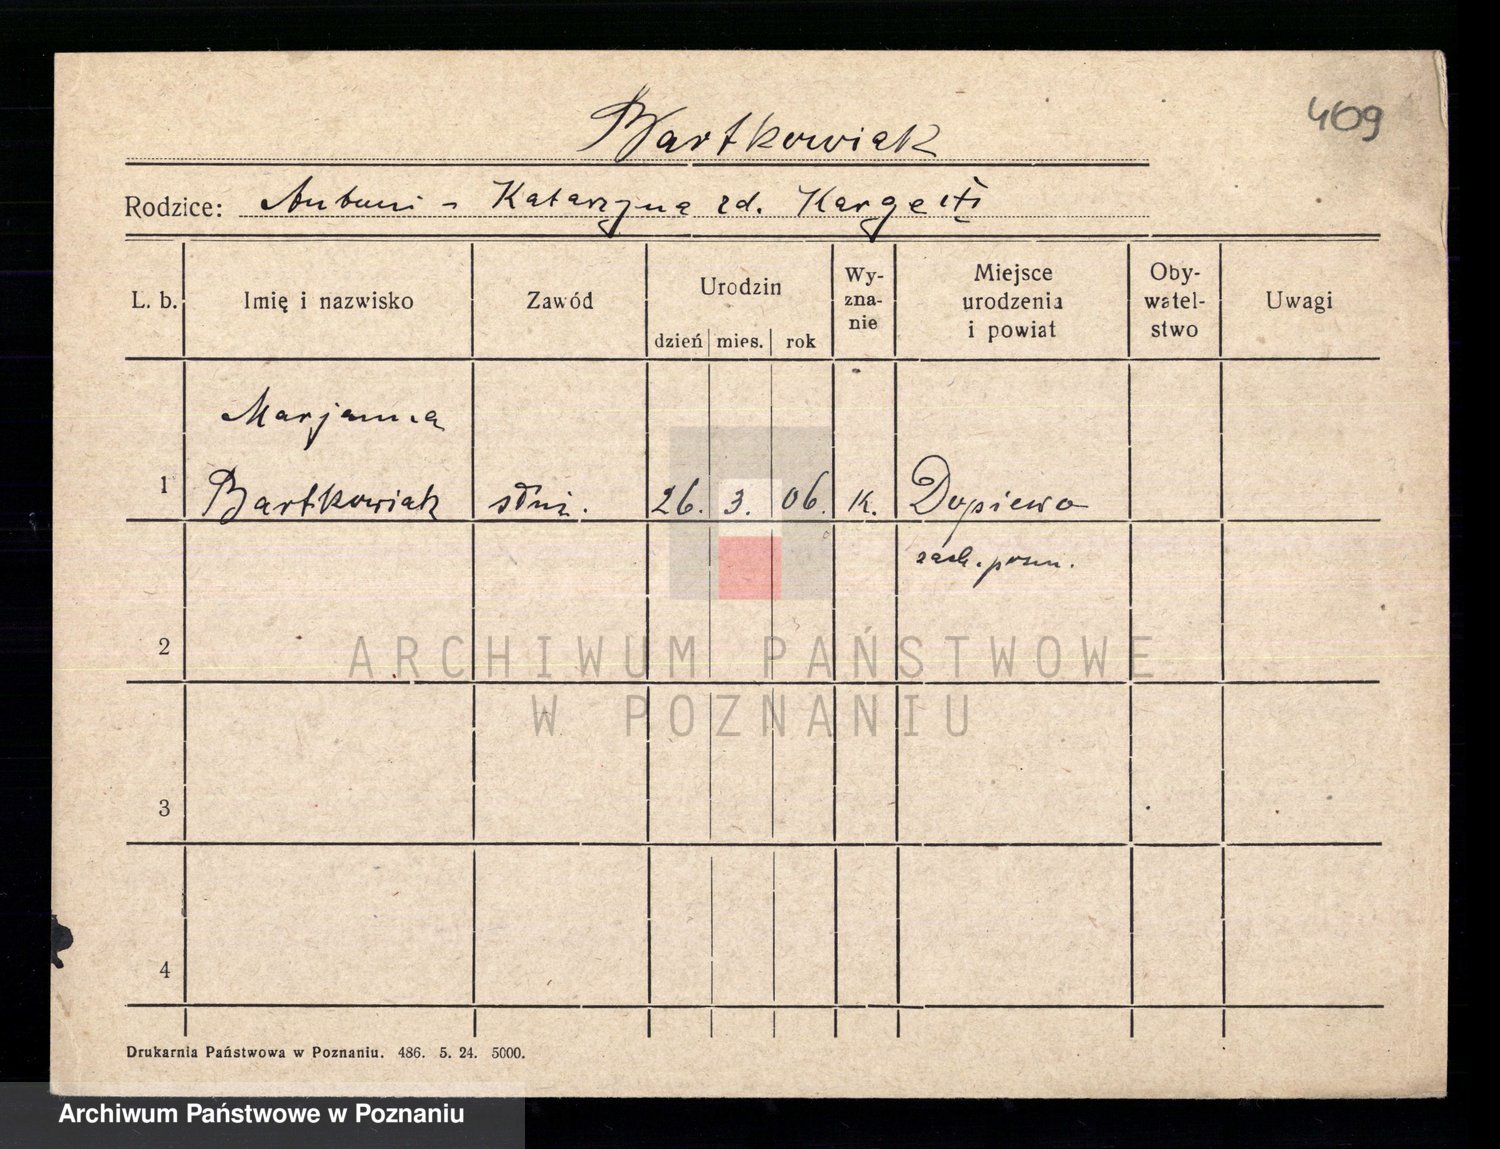 409
Bartkowiak
Rodzice: Antoni - Katarzyna zd.
L. b. Imię i nazwisko Zawód Urodzin dzień mies. rok Wy-zna-nie Miejsce urodzenia i powiat Oby-watel-stwo Uwagi
Marjanna
1 Bartkowiak służ. 26. 3. 06. K. Dopiewo
zach. pozn.
2
3
4
Drukarnia Państwowa w Poznaniu. 486. 5. 24. 5000.
ARCHIWUM PAŃSTWOWE
W POZNANIU
Archiwum Państwowe w Poznaniu